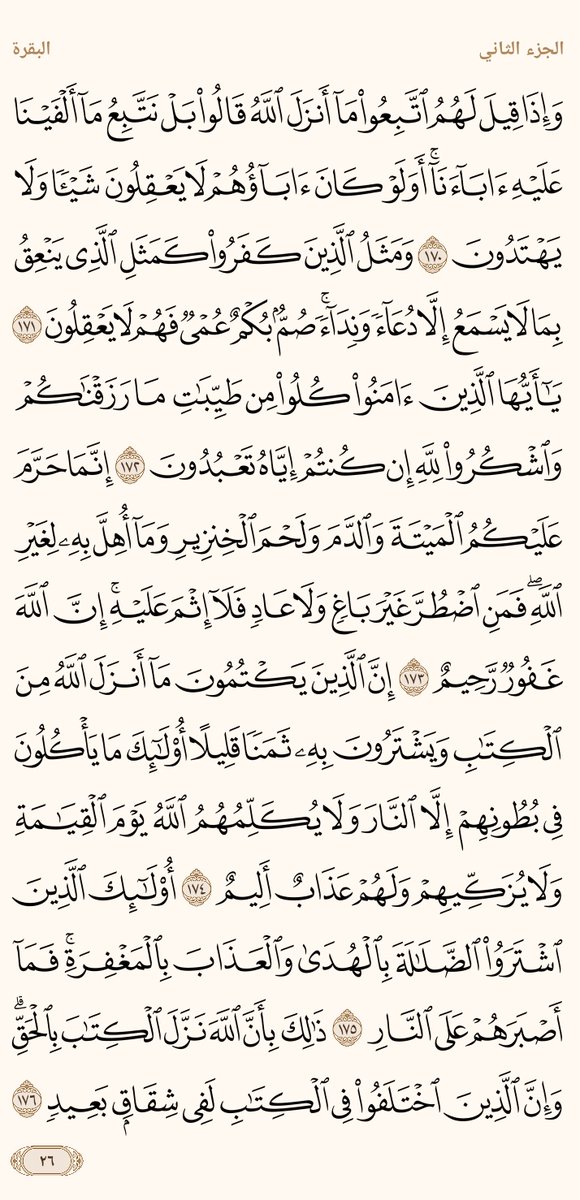 الجزء الثاني
البقرة
وَإِذَا قِيلَ لَهُمُ ٱتَّبِعُوا۟ مَآ أَنزَلَ ٱللَّهُ قَالُوا۟ بَلْ نَتَّبِعُ مَآ أَلْفَيْنَا
عَلَيْهِ ءَابَآءَنَآ ۚ أَوَلَوْ كَانَ ءَابَآؤُهُمْ لَا يَعْقِلُونَ شَيْـًٔا وَلَا
يَهْتَدُونَ ١٧٠ وَمَثَلُ ٱلَّذِينَ كَفَرُوا۟ كَمَثَلِ ٱلَّذِى يَنْعِقُ
بِمَا لَا يَسْمَعُ إِلَّا دُعَآءً وَنِدَآءً ۚ صُمٌّۢ بُكْمٌ عُمْىٌ فَهُمْ لَا يَعْقِلُونَ ١٧١
يَـٰٓأَيُّهَا ٱلَّذِينَ ءَامَنُوا۟ كُلُوا۟ مِن طَيِّبَـٰتِ مَا رَزَقْنَـٰكُمْ
وَٱشْكُرُوا۟ لِلَّهِ إِن كُنتُمْ إِيَّاهُ تَعْبُدُونَ ١٧٢ إِنَّمَا حَرَّمَ
عَلَيْكُمُ ٱلْمَيْتَةَ وَٱلدَّمَ وَلَحْمَ ٱلْخِنزِيرِ وَمَآ أُهِلَّ بِهِۦ لِغَيْرِ
ٱللَّهِ ۖ فَمَنِ ٱضْطُرَّ غَيْرَ بَاغٍ وَلَا عَادٍ فَلَآ إِثْمَ عَلَيْهِ ۚ إِنَّ ٱللَّهَ
غَفُورٌ رَّحِيمٌ ١٧٣ إِنَّ ٱلَّذِينَ يَكْتُمُونَ مَآ أَنزَلَ ٱللَّهُ مِنَ
ٱلْكِتَـٰبِ وَيَشْتَرُونَ بِهِۦ ثَمَنًا قَلِيلًا أُو۟لَـٰٓئِكَ مَا يَأْكُلُونَ
فِى بُطُونِهِمْ إِلَّا ٱلنَّارَ وَلَا يُكَلِّمُهُمُ ٱللَّهُ يَوْمَ ٱلْقِيَـٰمَةِ
وَلَا يُزَكِّيهِمْ وَلَهُمْ عَذَابٌ أَلِيمٌ ١٧٤ أُو۟لَـٰٓئِكَ ٱلَّذِينَ
ٱشْتَرَوُا۟ ٱلضَّلَـٰلَةَ بِٱلْهُدَىٰ وَٱلْعَذَابَ بِٱلْمَغْفِرَةِ ۚ فَمَآ
أَصْبَرَهُمْ عَلَى ٱلنَّارِ ١٧٥ ذَٰلِكَ بِأَنَّ ٱللَّهَ نَزَّلَ ٱلْكِتَـٰبَ بِٱلْحَقِّ ۗ
وَإِنَّ ٱلَّذِينَ ٱخْتَلَفُوا۟ فِى ٱلْكِتَـٰبِ لَفِى شِقَاقٍۭ بَعِيدٍ ١٧٦
٢٦